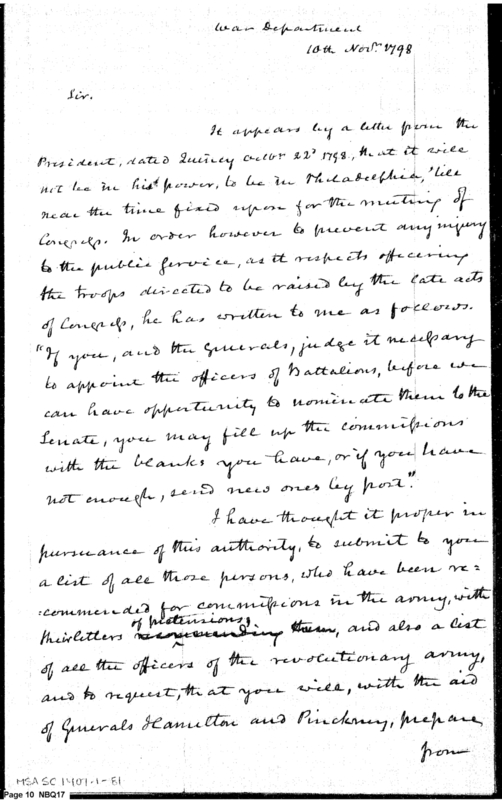 War Department
10th Novr. 1798
Sir.
It appears by a letter from the
President, dated Quincy octbr 22d 1798, that it will
not be in his power, to be in Philadelphia, 'till
near the time fixed upon for the meeting of
Congress. In order however to prevent any injury
to the public service, as it respects officering
the troops directed to be raised by the late acts
of Congress, he has written to me as follows.
"If you, and the Generals, judge it necessary
to appoint the officers of Battalions, before we
can have opportunity to nominate them to the
Senate, you may fill up the commissions
with the blanks you have, or if you have
not enough, send new ones by post."
I have thought it proper in
pursuance of this authority, to submit to you
a list of all those persons, who have been re=
=commended for commissions in the army, with
of pretensions,
their letters recommending them, and also a list
of all the officers of the revolutionary army,
and to request, that you will, with the aid
of Generals Hamilton and Pinckney, prepare
from
MSA SC 1401-1-E1
Page 10 NBQ17